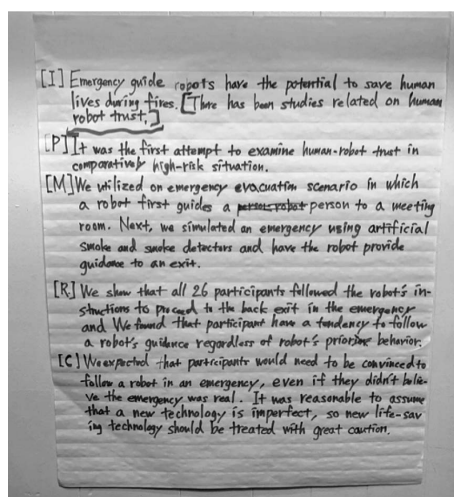 [I] Emergency guide robots have the potential to save human
lives during fires. [There has been studies related on human
robot trust.]
[P] It was the first attempt to examine human-robot trust in
comparatively high-risk situation.
[M] We utilized on emergency evacuation scenario in which
a robot first guides a person to a meeting
room. Next, we simulated an emergency using artificial
smoke and smoke detectors and have the robot provide
guidance to an exit.
[R] We show that all 26 participants followed the robot's in-
structions to proceed to the back exit in the emergency
and We found that participant have a tendency to follow
a robot's guidance regardless of robot's prior behavior.
[C] We expected that participants would need to be convinced to
follow a robot in an emergency, even if they didn't belie-
ve the emergency was real. It was reasonable to assume
that a new technology is imperfect, so new life-sav
ing technology should be treated with great caution.